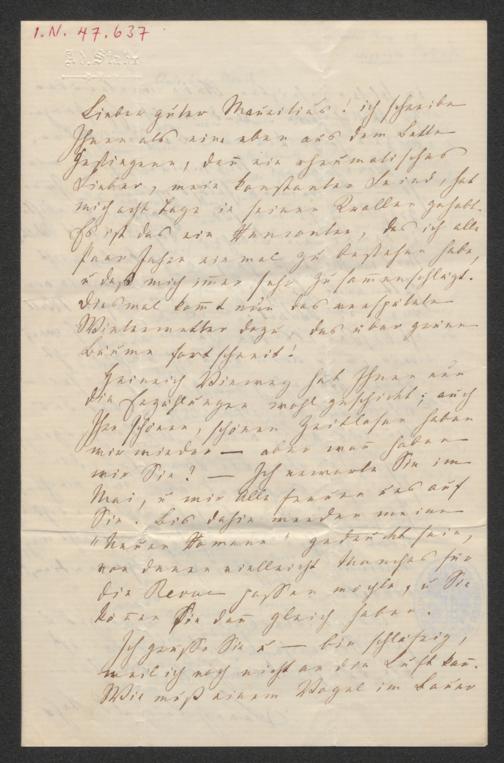 I.N. 47.637
Ad. Stahr
Lieber guter Mauritius! ich schreibe
Ihnen als eine eben aus dem Bette
Gestiegene, denn ein rheumatisches
Fieber, mein konstanter Feind, hat
mich acht Tage in seinen Krallen gehabt.
Es ist das ein Rencontre, das ich alle
Paar Jahre ein mal zu bestehen habe,
u das mich immer sehr zusammenschlägt.
Diesmal kommt nun das verspätete
Winterwetter dazu, das über grüne
Bäume fortschneit!
Heinrich Vieweg hat Ihnen nun
die Erzählungen wohl geschickt; auch
Ihre schönen, schönen Zeitlosen haben
wir wieder — aber wann haben
wir Sie? — Ich erwarte Sie im
Mai, u wir Alle freuen uns auf
Sie. Bis dahin werden meine
"Neuen Romane" gedruckt sein,
von denen vielleicht Manches für
die Revue passen möchte, u Sie
können Sie dann gleich haben.
Ich grüße Sie u — bin schläfrig,
weil ich noch nicht an die Luft kann.
Wie muß einem Vogel im Bauer